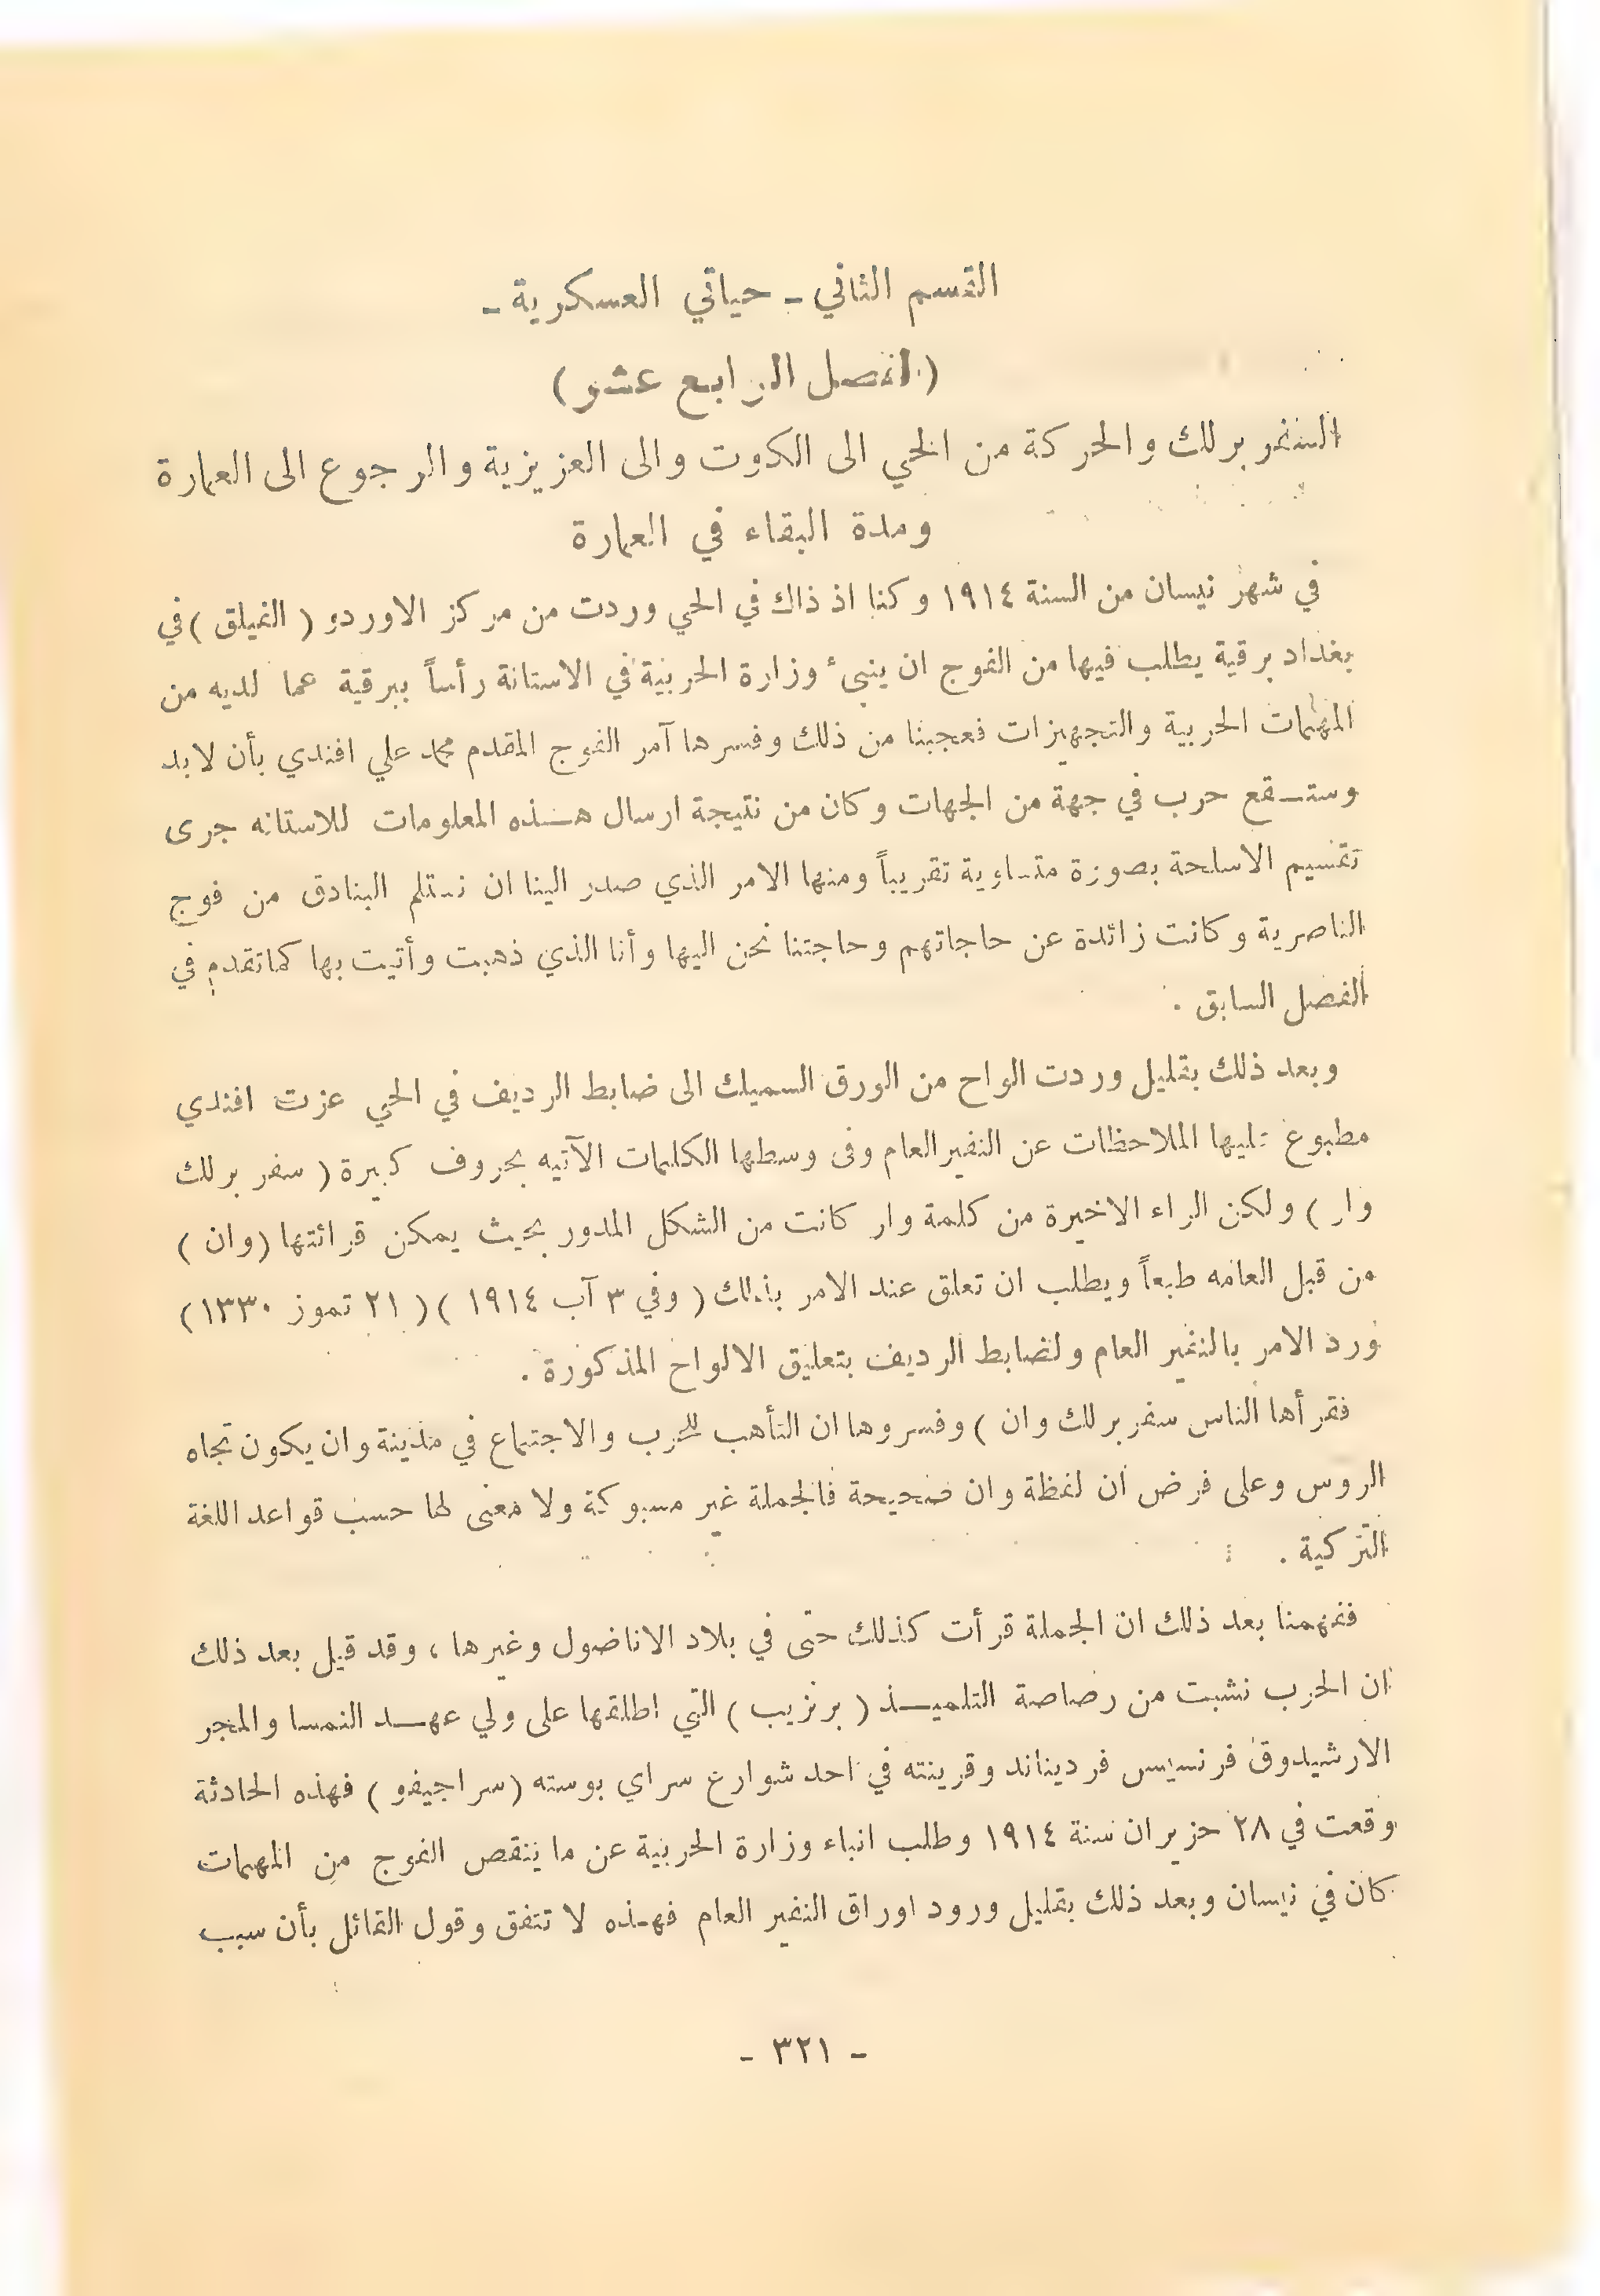 القسم الثاني - حياتي العسكرية -
(الفصل الرابع عشر)
السفر برلك والحركة من الحي الى الكوت والى العزيزية والرجوع الى العمارة
ومدة البقاء في العمارة
في شهر نيسان من السنة ١٩١٤ وكنا اذ ذاك في الحي وردت من مركز الاوردو ( الفيلق ) في
بغداد برقية يطلب فيها من الفوج ان ينبىء وزارة الحربية في الاستانة رأساً ببرقية عما لديه من
المهمات الحربية والتجهيزات فعجبنا من ذلك وفسرها آمر الفوج المقدم محمد علي افندي بأن لابد
وستقع حرب في جهة من الجهات وكان من نتيجة ارسال هذه المعلومات للاستانه جرى
تقسيم الاسلحة بصورة متساوية تقريباً ومنها الامر الذي صدر الينا ان نستلم البنادق من فوج
الناصرية وكانت زائدة عن حاجاتهم وحاجتنا نحن اليها وأنا الذي ذهبت وأتيت بها كماتقدم في
الفصل السابق .
وبعد ذلك بقليل وردت الواح من الورق السميك الى ضابط الرديف في الحي عزت افندي
مطبوع عليها الملاحظات عن النفير العام وفى وسطها الكلمات الآتيه بحروف كبيرة ( سفر برلك
وار ) ولكن الراء الاخيرة من كلمة وار كانت من الشكل المدور بحيث يمكن قرائتها (وان )
من قبل العامه طبعاً ويطلب ان تعلق عند الامر بذلك ( وفي ٣ آب ١٩١٤ ) ( ٢١ تموز ١٣٣٠)
ورد الامر بالنفير العام ولضابط الرديف بتعليق الالواح المذكورة .
فقرأها الناس سفربرلك وان ) وفسروها ان التأهب للحرب والاجتماع في مدينة وان يكون تجاه
الروس وعلى فرض ان لفظة وان صحيحة فالجملة غير مسبوكة ولا معنى لها حسب قواعد اللغة
التركية .
ففهمنا بعد ذلك ان الجملة قرأت كذلك حتى في بلاد الاناضول وغيرها ، وقد قيل بعد ذلك
ان الحرب نشبت من رصاصة التلميذ ( برنزيب ) التي اطلقها على ولي عهد النمسا والمجر
الارشيدوق فرنسيس فرديناند وقرينته في احد شوارع سراي بوسته (سراجيفو ) فهذه الحادثة
وقعت في ٢٨ حزيران سنة ١٩١٤ وطلب انباء وزارة الحربية عن ما ينقص الفوج من المهمات
كان في نيسان وبعد ذلك بقليل ورود اوراق النفير العام فهذه لا تتفق وقول القائل بأن سبب
- ٣٢١ -